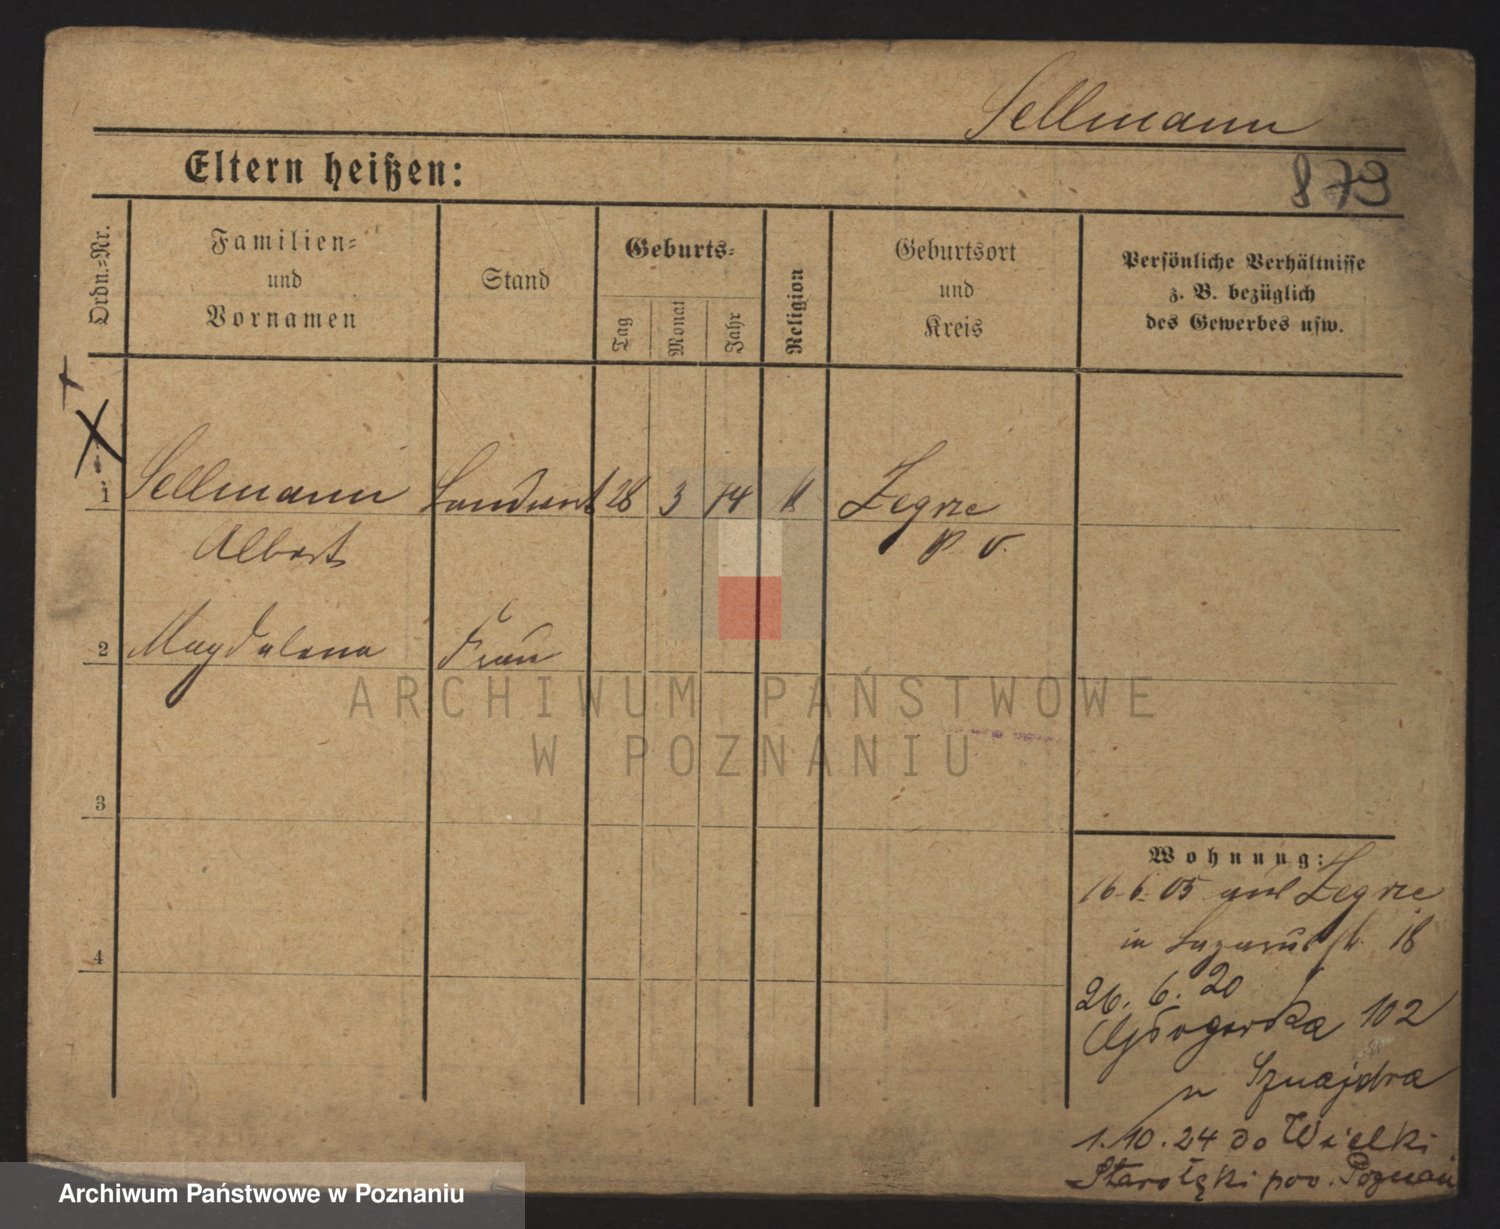 Sellmann
Eltern heißen:
873
Ordn.-Nr.
Familien-
und
Vornamen
Stand
Geburts-
Tag
Monat
Jahr
Religion
Geburtsort
und
Kreis
Persönliche Verhältnisse
z. B. bezüglich
des Gewerbes usw.
1 Sellmann 28 3 74 K Zegrze
Albert P. O.
2 Magdalena Frau
ARCHIWUM PAŃSTWOWE
W POZNANIU
3
Wohnung:
16.6.05 auf Zegrze
in Lazarus 18
4
26. 6. 20
102
u Sznajdra
1.10.24 do Wielki
Starołęki pow. Poznań
Archiwum Państwowe w Poznaniu